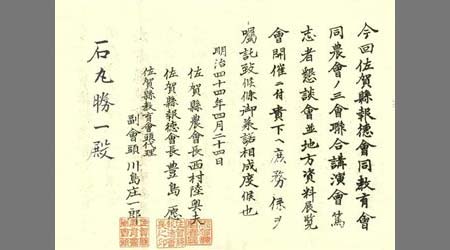 今回佐賀縣報徳會同教育會
同農會ノ三會聯合講演會篤
志者懇談會並地方資料展覧
會開催ニ付貴下ヘ庶務係ヲ
嘱託致候條御承諾相成度候也
明治四十四年四月二十四日
佐賀縣農會長西村陸奥夫
佐賀縣報徳會長豊島愿
佐賀縣教育會頭代理
副會頭川島庄一郎
石丸勝一殿